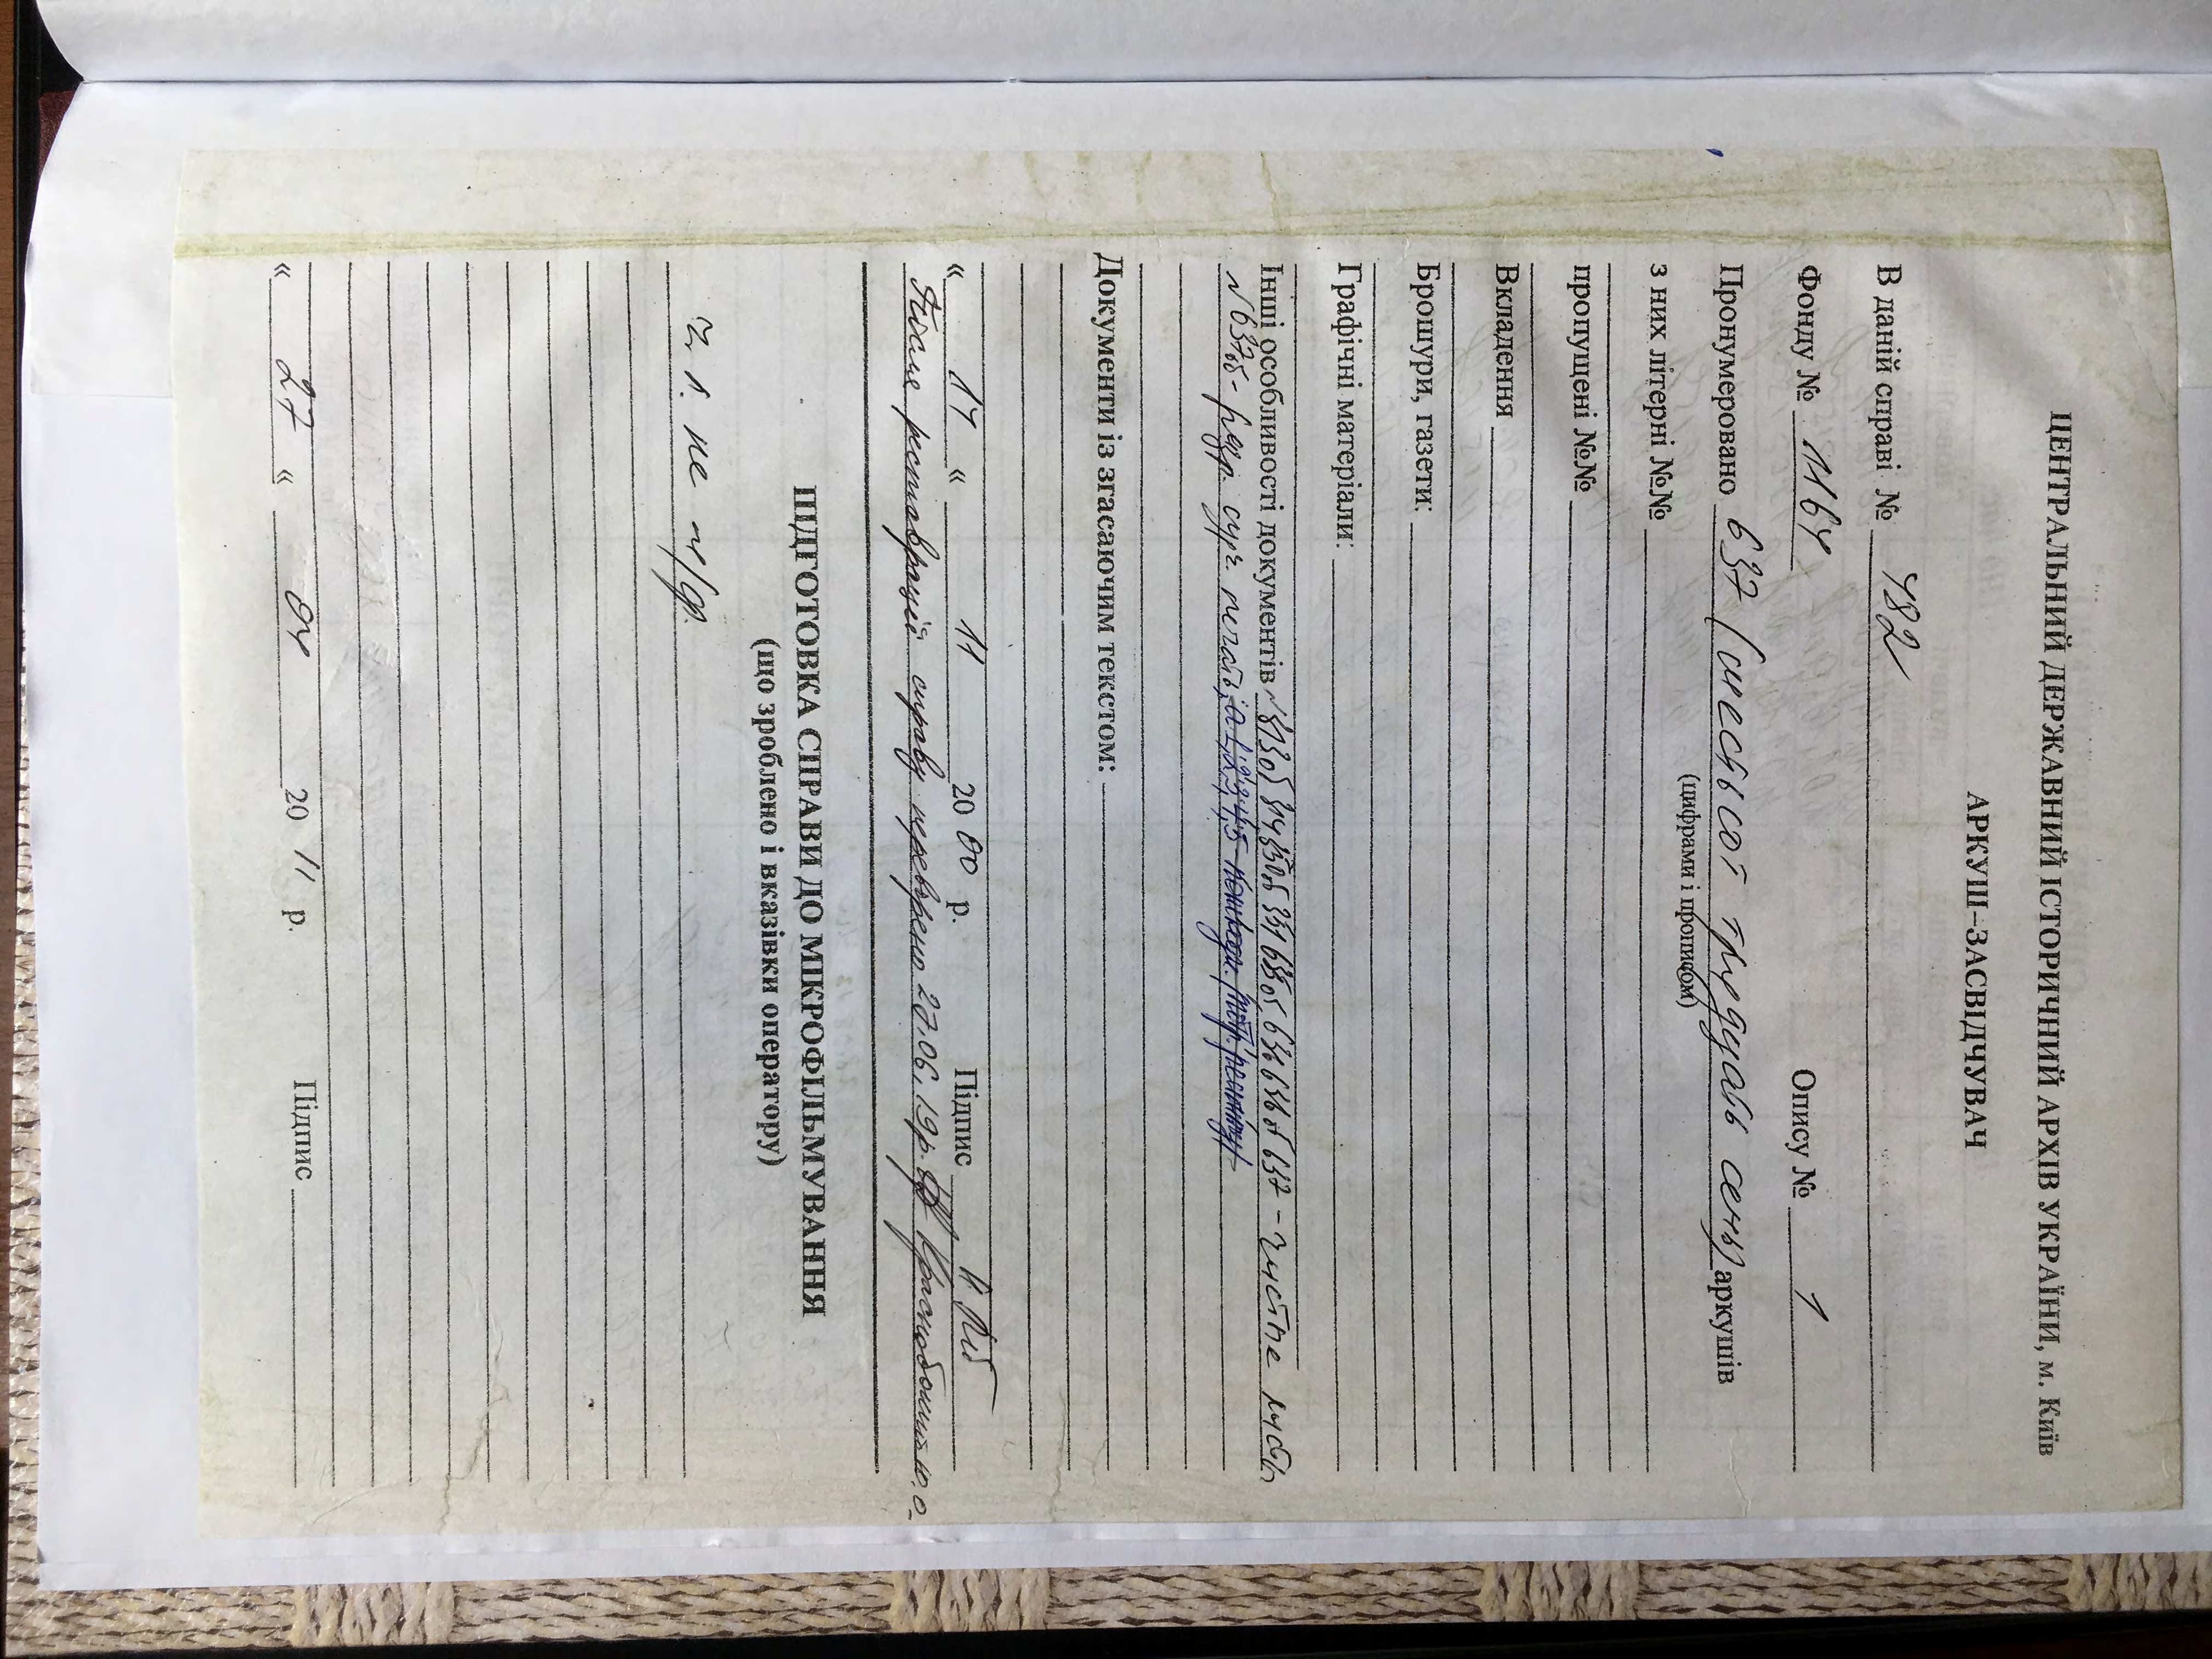 ЦЕНТРАЛЬНИЙ ДЕРЖАВНИЙ ІСТОРИЧНИЙ АРХІВ УКРАЇНИ, м. Київ
АРКУШ-ЗАСВІДЧУВАЧ
В даній справі № 482
Фонду № 1164 Опису № 1
Пронумеровано 637 (шістьсот тридцять сім) аркушів
(цифрами і прописом)
з них літерні №№
пропущені №№
Вкладення
Брошури, газети:
Графічні матеріали:
Інші особливості документів 331 637 - чисте
Документи із згасаючим текстом:
« 17 « 11 20 00 р. Підпис
Після реставрації справу перевірено 27.06.19р.
ПІДГОТОВКА СПРАВИ ДО МІКРОФІЛЬМУВАННЯ
(що зроблено і вказівки оператору)
не
« 27 « 04 20 11 р. Підпис